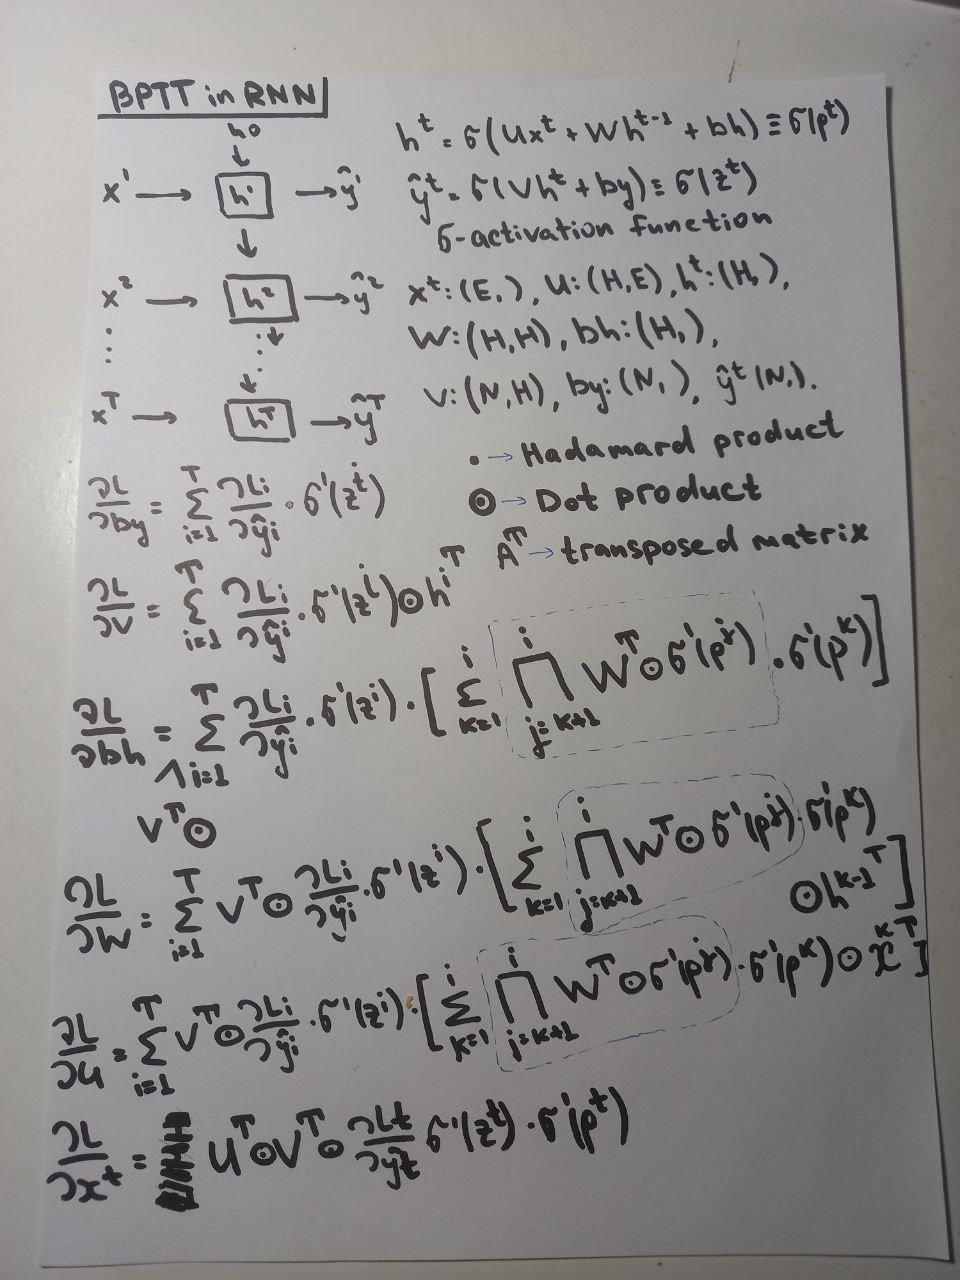 BPTT in RNN
h0
x¹ → h¹ → ŷ¹
x² → h² → ŷ²
⋮
xᵀ → hᵀ → ŷᵀ
hᵗ = σ(Uxᵗ + Whᵗ⁻¹ + bh) ≡ σ(pᵗ)
ŷᵗ = σ(Vhᵗ + by) ≡ σ(zᵗ)
σ-activation function
xᵗ: (E,), U: (H,E), hᵗ: (H,),
W: (H,H), bh: (H,),
V: (N,H), by: (N,), ŷᵗ (N,).
• → Hadamard product
⊙ → Dot product
Aᵀ → transposed matrix
∂L/∂by = Σ_{i=1}^{T} ∂Li/∂ŷi · σ'(zᵗ)
∂L/∂V = Σ_{i=1}^{T} ∂Li/∂ŷi · σ'(zⁱ) ⊙ hⁱᵀ
∂L/∂bh = Σ_{i=1}^{T} ∂Li/∂ŷi · σ'(zⁱ) · [Σ_{k=1}^{i} ∏_{j=k+1}^{i} Wᵀ ⊙ σ'(pʲ) · σ'(pᵏ)]
Vᵀ ⊙
∂L/∂W = Σ_{i=1}^{T} Vᵀ ⊙ ∂Li/∂ŷi · σ'(zⁱ) · [Σ_{k=1}^{i} ∏_{j=k+1}^{i} Wᵀ ⊙ σ'(pʲ) · σ'(pᵏ)
⊙ hᵏ⁻¹ᵀ]
∂L/∂U = Σ_{i=1}^{T} Vᵀ ⊙ ∂Li/∂ŷi · σ'(zⁱ) · [Σ_{k=1}^{i} ∏_{j=k+1}^{i} Wᵀ ⊙ σ'(pʲ) · σ'(pᵏ) ⊙ xᵏᵀ]
∂L/∂xᵗ = Uᵀ ⊙ Vᵀ ⊙ ∂Lt/∂ŷt σ'(zᵗ) · σ'(pᵗ)